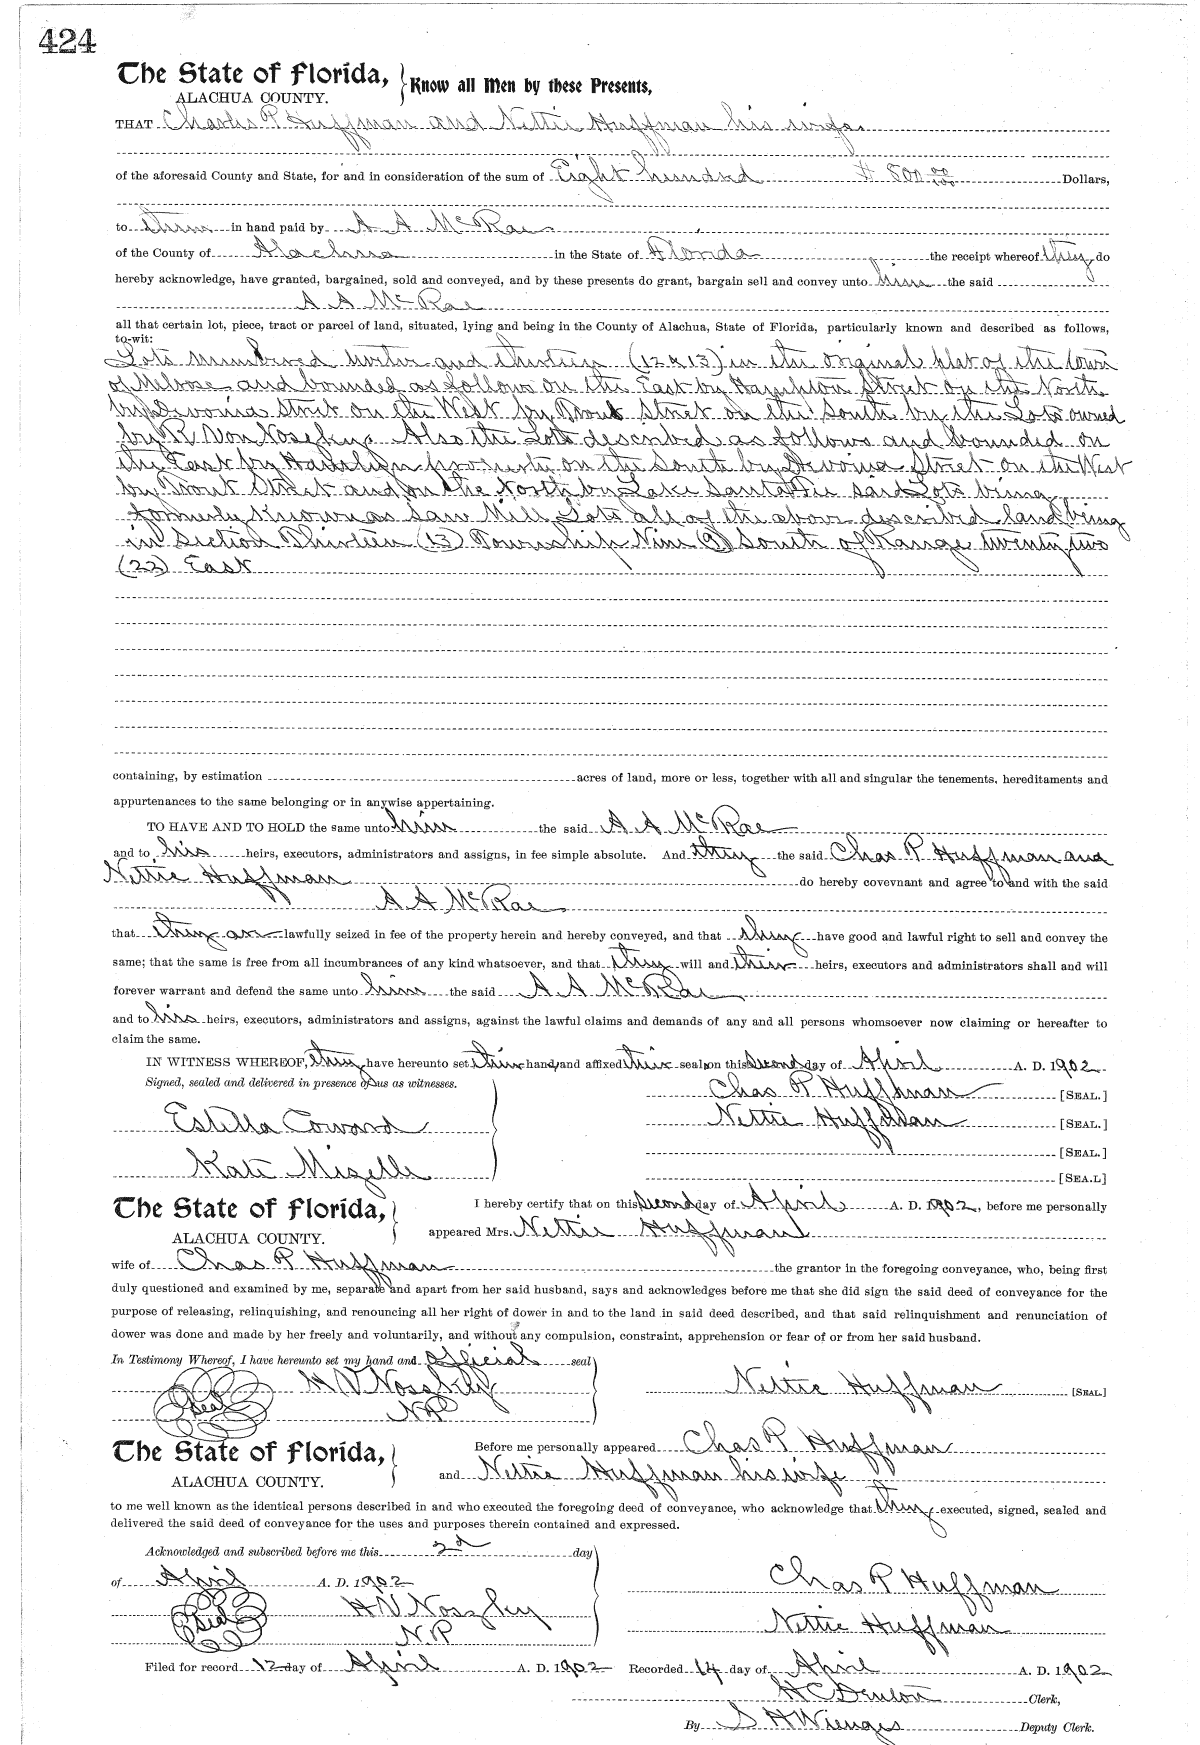 424
The State of Florida,
ALACHUA COUNTY.
Know all Men by these Presents,
THAT Charles P Huffman and Nettie Huffman his wife
of the aforesaid County and State, for and in consideration of the sum of Eight hundred $ 800 00/100 Dollars,
to them in hand paid by A A McRae
of the County of Alachua in the State of Florida the receipt whereof they do
hereby acknowledge, have granted, bargained, sold and conveyed, and by these presents do grant, bargain sell and convey unto him the said
A A McRae
all that certain lot, piece, tract or parcel of land, situated, lying and being in the County of Alachua, State of Florida, particularly known and described as follows,
to-wit:
Lots numbered twelve and thirteen (12 & 13) in the original plat of the town
of Melrose and bounded as follows on the East by Hampton Street on the North
by Street on the West by Street on the South by the Lots owned
by R Von Also the Lots described as follows and bounded on
the East by on the South by Street on the West
by Street and on the North by Lake Santa Fee said Lots being
formerly known as Saw Mill Lots all of the above described land being
in Section Thirteen (13) Township Nine (9) South of Range twenty two
(22) East
containing, by estimation acres of land, more or less, together with all and singular the tenements, hereditaments and
appurtenances to the same belonging or in anywise appertaining.
TO HAVE AND TO HOLD the same unto him the said A A McRae
and to his heirs, executors, administrators and assigns, in fee simple absolute. And they the said Chas P Huffman and
Nettie Huffman do hereby covevnant and agree to and with the said
A A McRae
that they are lawfully seized in fee of the property herein and hereby conveyed, and that they have good and lawful right to sell and convey the
same; that the same is free from all incumbrances of any kind whatsoever, and that they will and their heirs, executors and administrators shall and will
forever warrant and defend the same unto him the said A A McRae
and to his heirs, executors, administrators and assigns, against the lawful claims and demands of any and all persons whomsoever now claiming or hereafter to
claim the same.
IN WITNESS WHEREOF, they have hereunto set their hand and affixed their seal on this Second day of April A. D. 1902
Signed, sealed and delivered in presence of us as witnesses.
Chas P Huffman [SEAL.]
Estella Coward
Nettie Huffman [SEAL.]
[SEAL.]
Kate Mizelle
[SEA.L]
The State of Florida,
ALACHUA COUNTY.
I hereby certify that on this Second day of April A. D. 1902, before me personally
appeared Mrs. Nettie Huffman
wife of Chas P Huffman the grantor in the foregoing conveyance, who, being first
duly questioned and examined by me, separate and apart from her said husband, says and acknowledges before me that she did sign the said deed of conveyance for the
purpose of releasing, relinquishing, and renouncing all her right of dower in and to the land in said deed described, and that said relinquishment and renunciation of
dower was done and made by her freely and voluntarily, and without any compulsion, constraint, apprehension or fear of or from her said husband.
In Testimony Whereof, I have hereunto set my hand and official seal
Seal
NP
Nettie Huffman [SEAL.]
The State of Florida,
ALACHUA COUNTY.
Before me personally appeared Chas P Huffman
and Nettie Huffman his wife
to me well known as the identical persons described in and who executed the foregoing deed of conveyance, who acknowledge that they executed, signed, sealed and
delivered the said deed of conveyance for the uses and purposes therein contained and expressed.
Acknowledged and subscribed before me this 2d day
of April A. D. 1902
Chas P Huffman
Seal
N.P
Nettie Huffman
Filed for record 12 day of April A. D. 1902 Recorded 14 day of April A. D. 1902
H C Denton Clerk,
By S H Wienges Deputy Clerk.